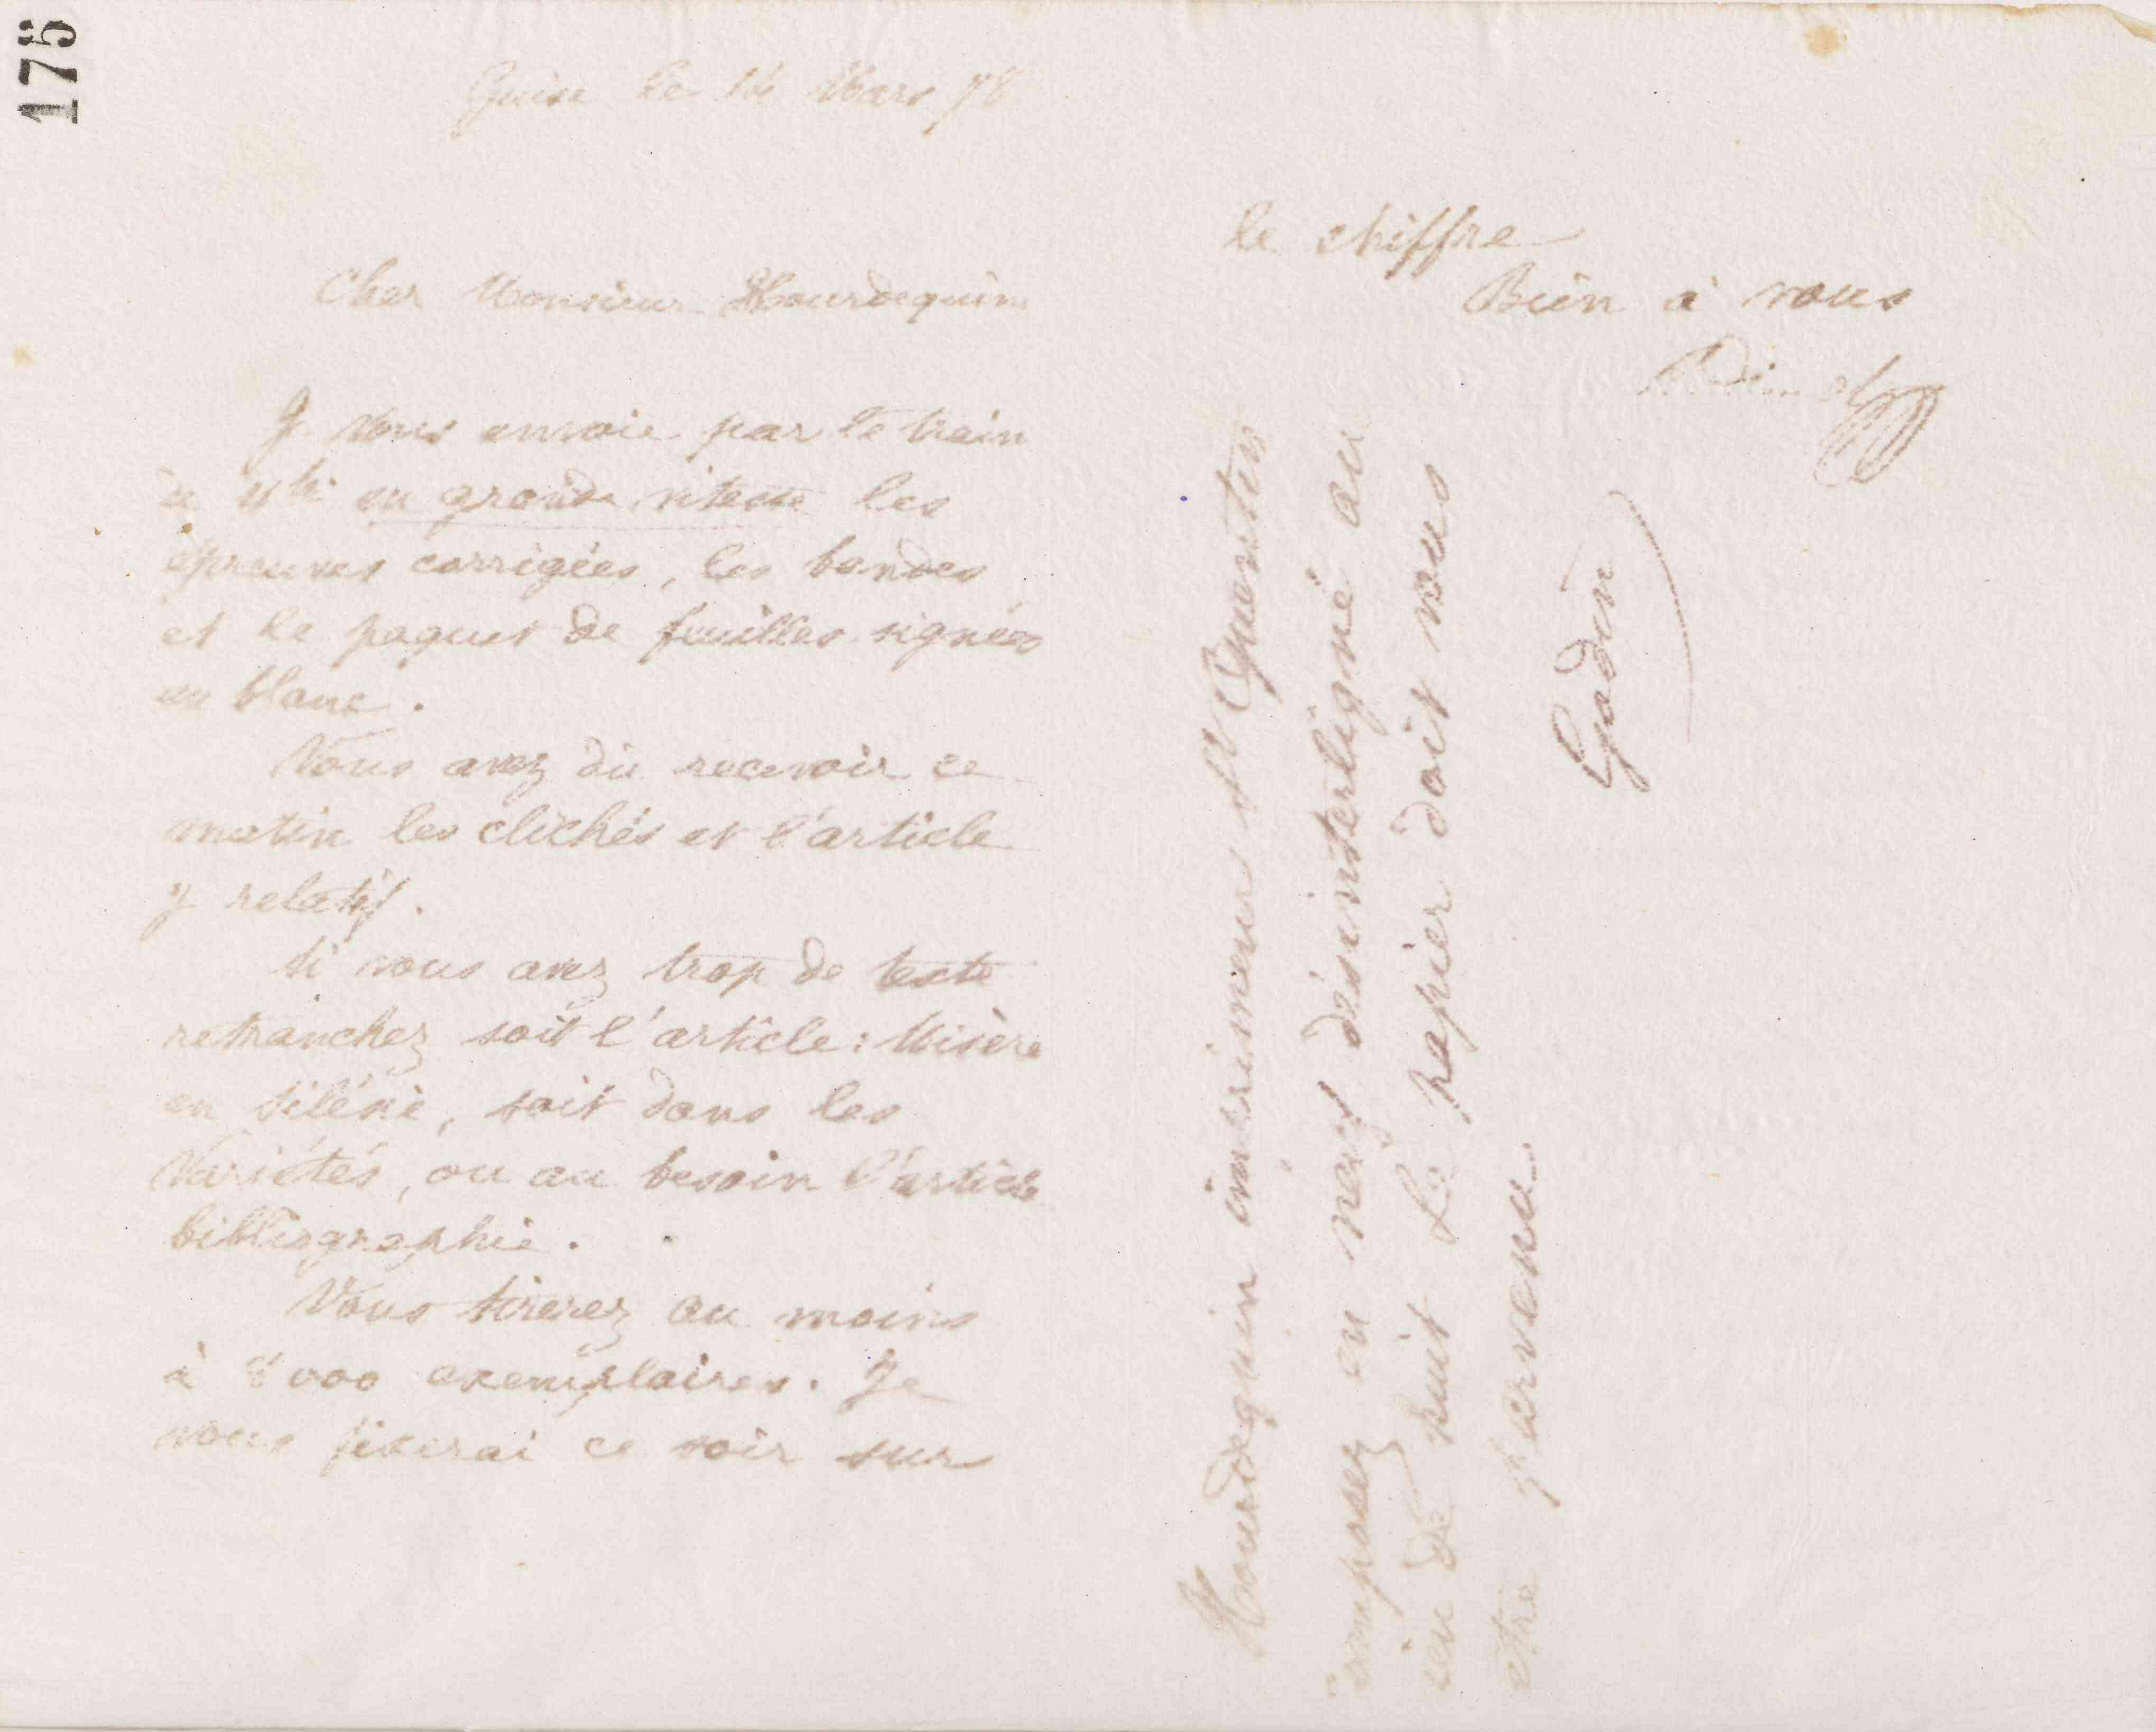 175
Guise le 14 Mars 78
Cher Monsieur Hourdequin
Je vous envoie par le train
de en grande vitesse les
épreuves corrigées, les bandes
et le paquet de feuilles signées
en blanc.
Vous avez dû recevoir ce
matin les clichés et l'article
y relatif.
Si vous avez trop de texte
retranchez soit l'article : Misère
en Silésie, soit dans les
Variétés, ou au besoin l'article
bibliographie.
Vous tirerez au moins
à 000 exemplaires. Je
vous fixerai ce soir sur
le chiffre
Bien à vous
Hourdequin imprimeur St Quentin
composez en neuf désinterligné au
lieu de huit Le papier doit vous
etre parvenu.
Godin